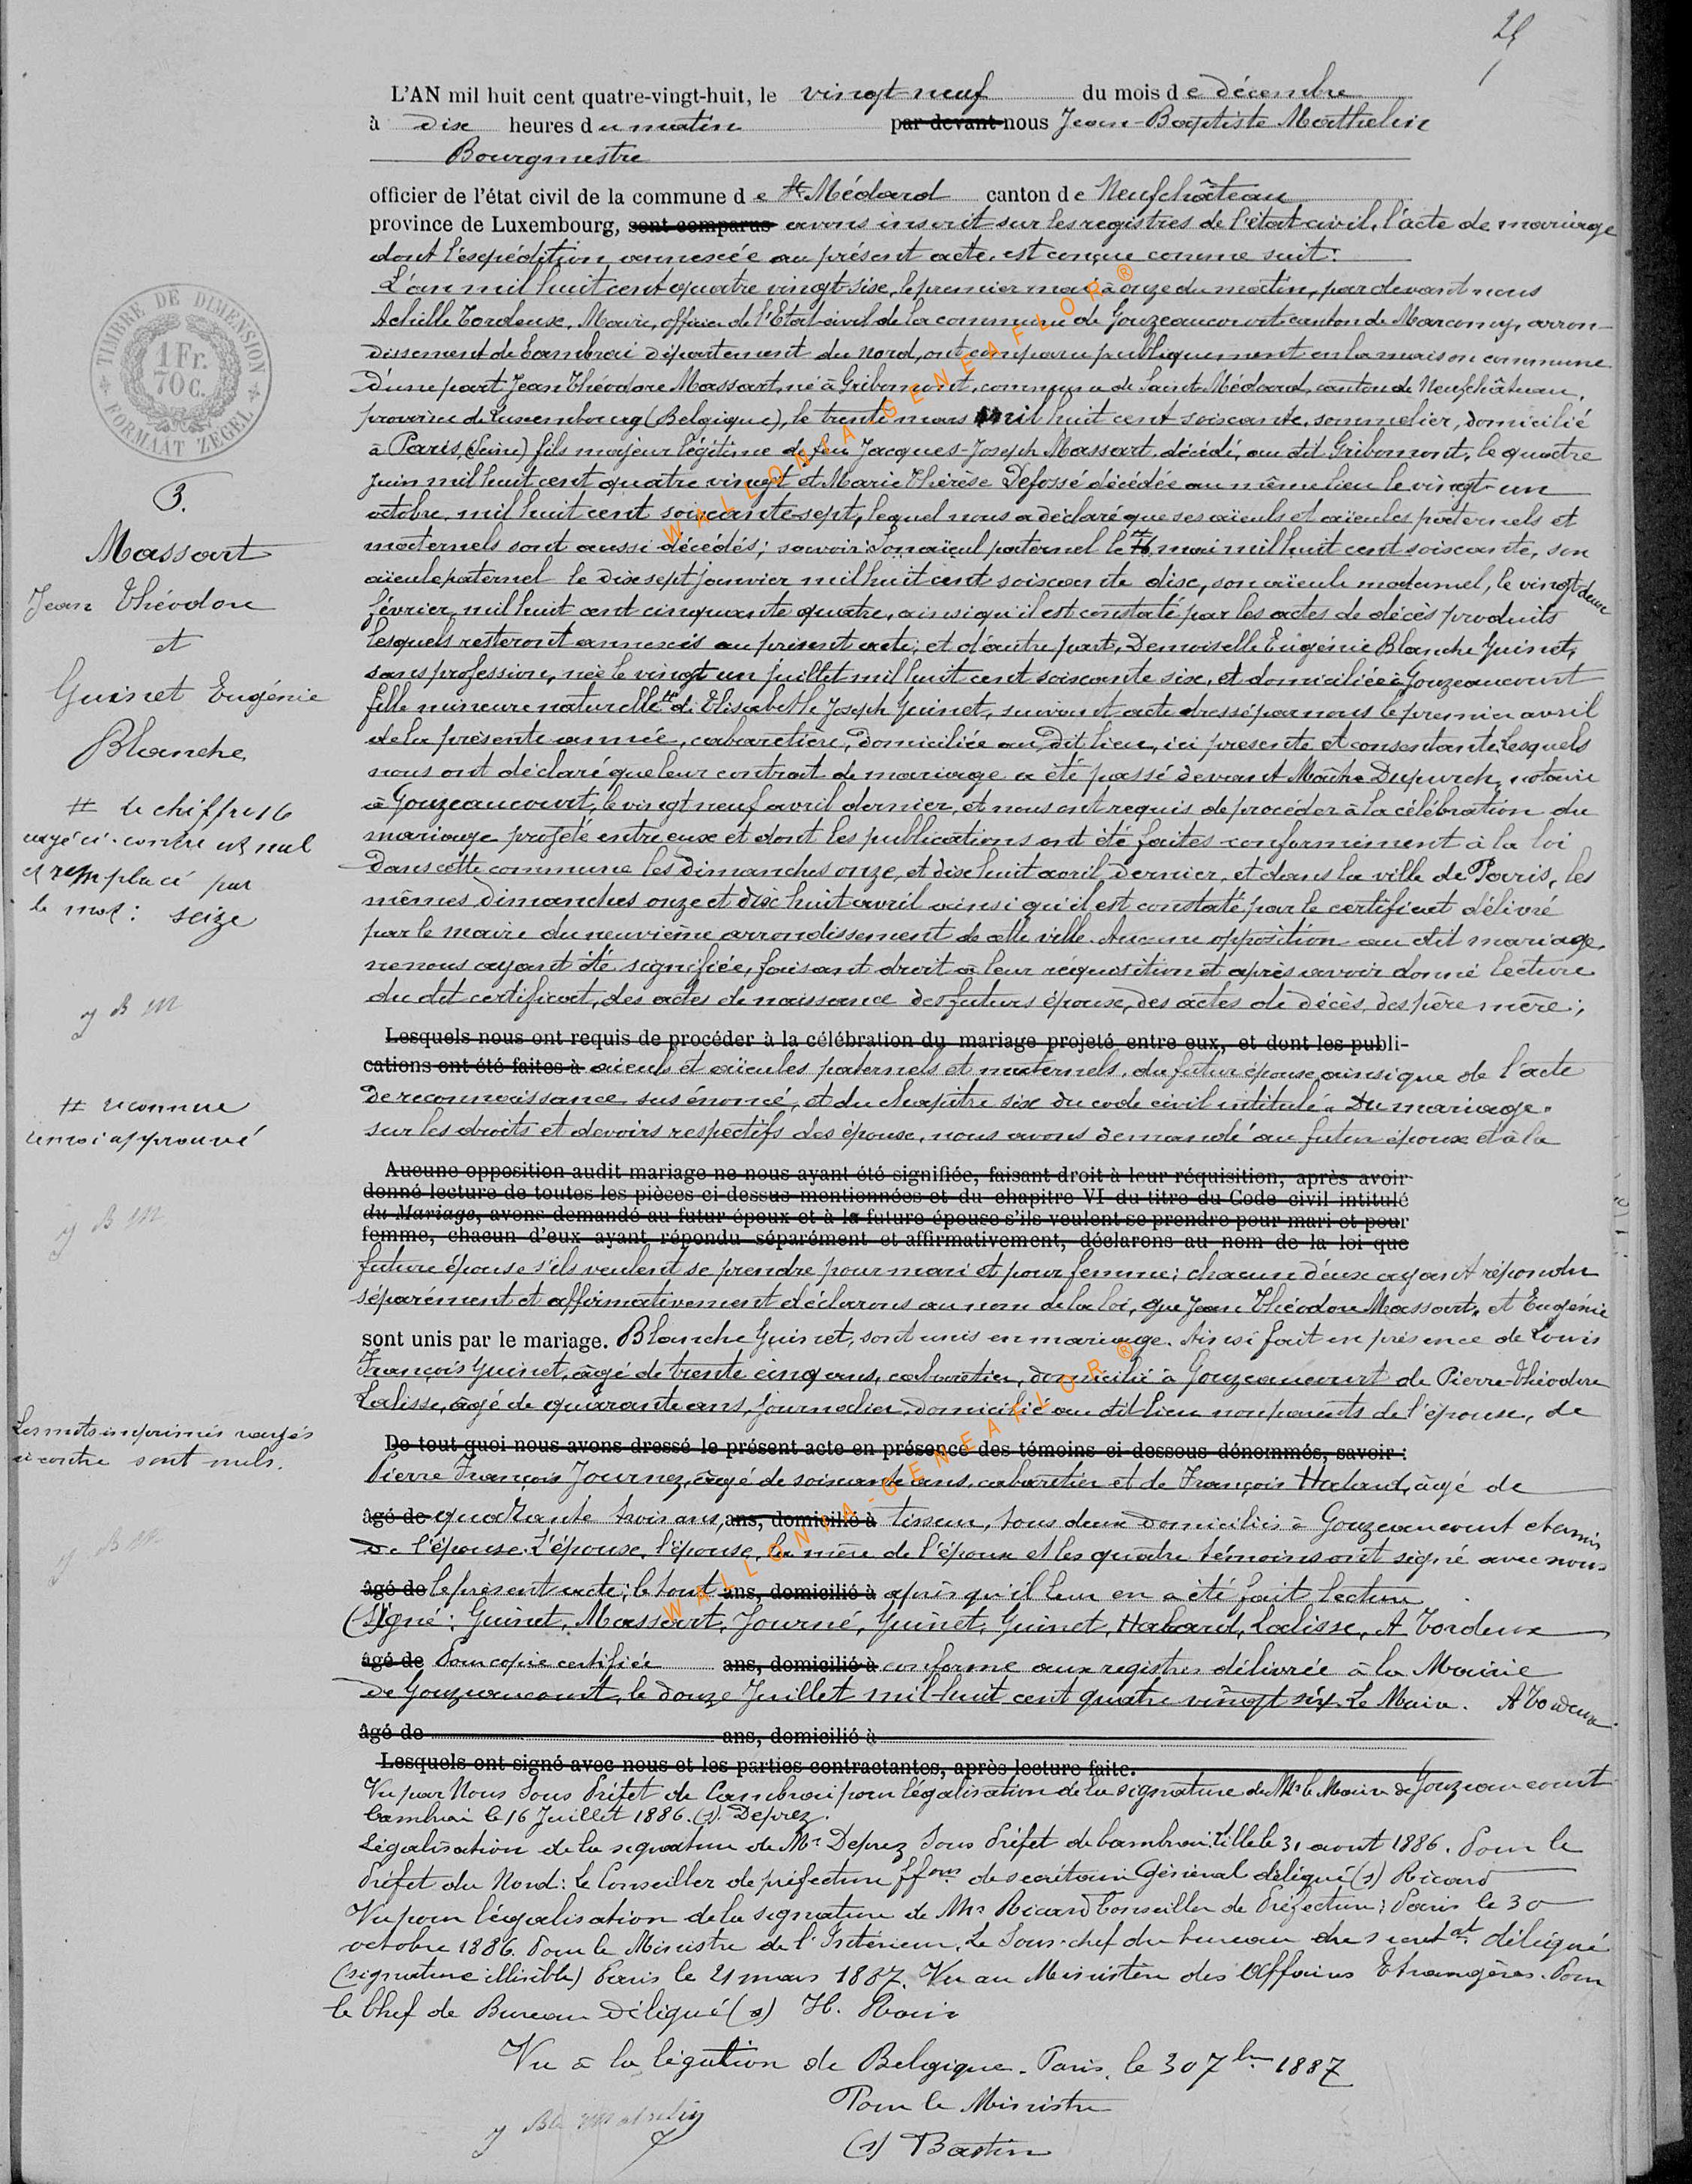 25
L'AN mil huit cent quatre-vingt-huit, le vingt-neuf du mois de décembre
à dix heures du matin par devant nous Jean-Baptiste Mathelin
Bourgmestre
officier de l'état civil de la commune de St Médard canton de Neufchâteau
province de Luxembourg, sont comparus avons inscrit sur les registres de l'état-civil, l'acte de mariage
dont l'expédition annexée au présent acte, est conçue comme suit:
L'an mil huit cent quatre vingt-six, le premier mai à onze du matin, par devant nous
Achille Tordeux, Maire, officier de l'Etat-civil de la commune de Gouzeaucourt canton de Marcoing, arron-
dissement de Cambrai département du Nord, ont comparu publiquement en la maison commune
D'une part Jean Théodore Massart, né à Gribomont, commune de Saint-Médard, canton de Neufchâteau,
province de Luxembourg (Belgique), le trente mars mil huit cent soixante, sommelier, domicilié
à Paris, (Seine) fils majeur légitime de feu Jacques-Joseph Massart, décédé, au dit Gribomont, le quatre
juin mil huit cent quatre vingt et Marie Thérèse Defossé décédée au même lieu le vingt-un
octobre, mil huit cent soixante-sept, lequel nous a déclaré que ses aïeuls et aïeules paternels et
maternels sont aussi décédés; savoir: son aïeul paternel le 16 mai mil huit cent soixante, son
aïeule paternel le dix sept janvier mil huit cent soixante dix, son aïeule maternel, le vingt deux
février, mil huit cent cinquante quatre, ainsi qu'il est constaté par les actes de décès produits
lesquels resteront annexés au présent acte; et d'autre part, Demoiselle Eugénie Blanche Guinet,
sans profession, née le vingt un juillet mil huit cent soixante six, et domiciliée à Gouzeaucourt
fille mineure naturelle # de Elisabeth Joseph Guinet, suivant acte dressé par nous le premier avril
de la présente année, cabaretière, domiciliée au dit lieu, ici presente et consentante. Lesquels
nous ont déclaré que leur contrat de mariage a été passé devant Maître Dupurch, notaire
à Gouzeaucourt, le vingt neuf avril dernier, et nous ont requis de procéder à la célébration du
mariage projeté entre eux et dont les publications ont été faites conformément à la loi
Dans cette commune les dimanches onze, et dix huit avril dernier, et dans la ville de Paris, les
mêmes dimanches onze et dix huit avril ainsi qu'il est constaté par le certificat délivré
par le maire du neuvième arrondissement de cette ville. Aucune opposition au dit mariage
ne nous ayant été signifiée, faisant droit à leur réquisition et après avoir donné lecture
du dit certificat, des actes de naissance des futurs époux, des actes de décès, des père mère;
Lesquels nous ont requis de procéder à la célébration du mariage projeté entre eux, et dont les publi-
cations ont été faites à aïeuls et aïeules paternels et maternels, du futur époux, ainsi que de l'acte
De reconnaissance sus énoncé, et du chapitre six du code civil intitulé "Du mariage"
sur les droits et devoirs respectifs des époux, nous avons demandé au futur époux et à la
Aucune opposition audit mariage ne nous ayant été signifiée, faisant droit à leur réquisition, après avoir
donné lecture de toutes les pièces ci-dessus mentionnées et du chapitre VI du titre du Code civil intitulé
du Mariage, avons demandé au futur époux et à la future épouse s'ils veulent se prendre pour mari et pour
femme, chacun d'eux ayant répondu séparément et affirmativement, déclarons au nom de la loi que
future épouse s'ils veulent se prendre pour mari et pour femme; chacun d'eux ayant répondu
séparément et affirmativement déclarons au nom de la loi, que Jean Théodore Massart, et Eugénie
sont unis par le mariage. Blanche Guinet, sont unis en mariage. Ainsi fait en présence de Louis
François Guinet, âgé de trente cinq ans, cabaretier, domicilié à Gouzeaucourt de Pierre-Théodore
Lalisse, âgé de quarante ans, journalier, domicilié au dit lieu non parents de l'épouse, de
De tout quoi nous avons dressé le présent acte en présence des témoins ci-dessous dénommés, savoir:
Pierre François Journez, âgé de soixante ans, cabaretier et de François Halard, âgé de
âgé de quarante trois ans, ans, domicilié à tisseur, tous deux domiciliés à Gouzeaucourt et amis
De l'épouse. L'épouse, l'épouse, la mère de l'époux et les quatre témoins ont signé avec nous
âgé de le présent acte; le tout ans, domicilié à après qu'il leur en a été fait lecture
(Signé: Guinet, Massart, Journé, Guinet, Guinet, Halard, Lalisse, A Tordeux
âgé de Pour copie certifiée ans, domicilié à conforme aux registres délivrée à la Mairie
De Gouzeaucourt, le douze Juillet mil huit cent quatre vingt six. Le Maire. A Tordeux
âgé de ans, domicilié à
Lesquels ont signé avec nous et les parties contractantes, après lecture faite.
Vu par Nous Sous Préfet de Cambrai pour légalisation de la signature de Mr le Maire de Gouzeaucourt
Cambrai le 16 Juillet 1886. (s). Deprez.
Légalisation de la signature de Mr Deprez Sous Préfet de Cambrai. Lille le 31 aout 1886. Pour le
Préfet du Nord: Le Conseiller de préfecture ffons de secrétaire Général délégué (s) Ricard
Vu pour légalisation de la signature de Mr Ricard Conseiller de Préfecture; Paris le 30
octobre 1886. Pour le Ministre de l'Intérieur. Le Sous-chef du bureau du secretat délégué
(signature illisible) Paris le 21 mars 1887. Vu au Ministère des Affaires Etrangères. Pour
le Chef de Bureau Délégué (s) H.
Vu à la légation de Belgique. Paris, le 30 7bre 1887
Pour le Ministre
(s) Bastin
J Bte Mathelin
TIMBRE DE DIMENSION
1 Fr.
70 C.
FORMAAT ZEGEL
3.
Massart
Jean Théodore
et
Guinet Eugénie
Blanche
# Le chiffre 16
rayé ci-contre est nul
et remplacé par
le mot: seize
J B M
# reconnue
renvoi approuvé
J B M
Les mots imprimés rayés
ci contre sont nuls.
J B M
WALLONIA-GENEAFLOR®
WALLONIA-GENEAFLOR®